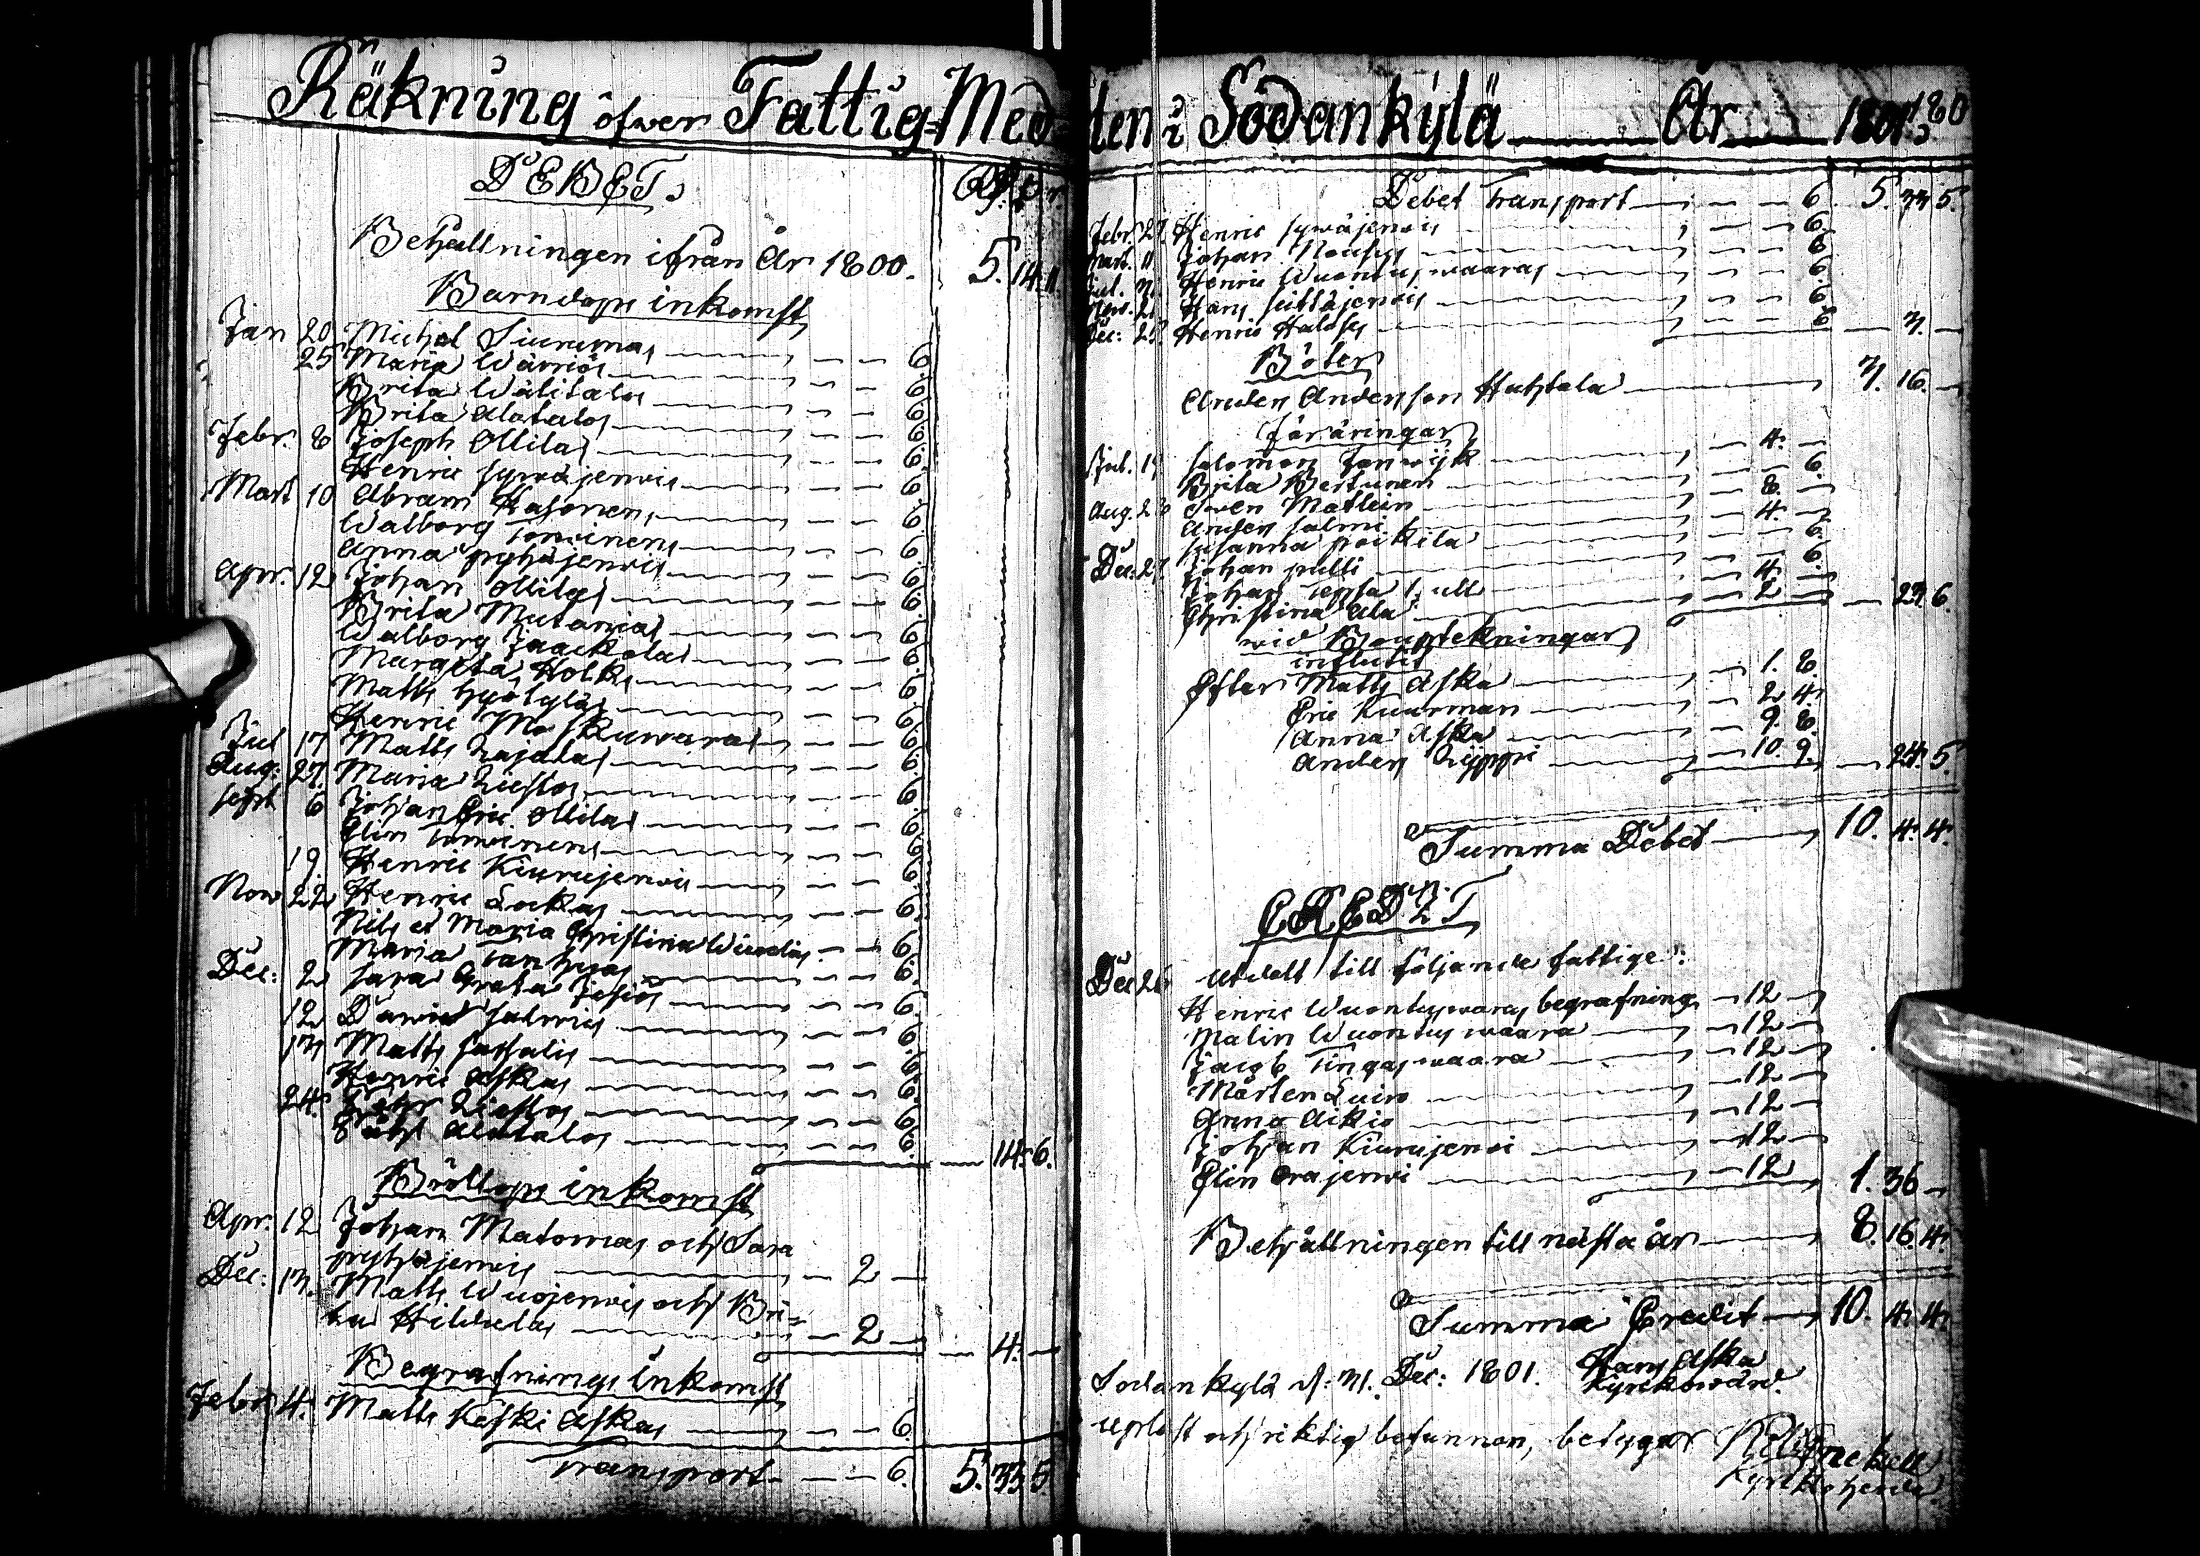 Räkning öfwer Fattig-Medlen i Sodankylä År 1801
DEBET.
Behållningen ifrån År 1800. 5. 14. 11.
Barndops inkomst
Jan 20 Michel Siurumas 6.
25 Maria Wärriös 6.
Brita Wälitalos 6.
Brita Alatalos 6.
Febr. 8 Joseph Ollilas 6.
Henric Syväjerwis 6.
Mart 10 Abram Kasonens 6.
Walborg Tomminens 6.
Anna Pyhäjerwis 6.
Apr. 12 Johan Ollilas 6.
Brita Mutanias 6.
Walborg Jaackolas 6.
Margeta Holks 6.
Matts Hyötyläs 6.
Henric Moskuwaras 6.
Jul 17 Matts Lajalas 6.
Aug. 27. Maria Liestos 6.
Sept 6 Johan Eric Ollilas 6.
Elin Tomminens 6.
19. Henric Kiurujerwis 6.
Now 22 Henric Lockas 6.
Nils et Maria Christina 6.
Maria Tanhuas 6.
Dec: 2 Sara Greta Jesiös 6.
12 David Salmis 6.
13 Matts Sassalis 6.
Henric Askas 6.
24. Petr Liestos 6.
Alatalos 6.
14. 6.
Bröllops inkomst
Apr. 12 Johan Matomas och Sara
Pyhäjerwis 2
Dec. 13. Matts Wuojerwis och Bri=
ta Hiltulas 2
4.
Begrafnings inkomst
Febr 4. Matts Keski Askas 6.
Transport 6. 5. 33. 5.
Debet Transport 6. 5. 33. 5.
Febr. 27. Henric Syväjerwis 6.
Mart. 11 Johan Nousus 6.
Jul. Henric Wuontuswaaras 6.
Nov. 21 Hans Seitäjerwis 6.
Dec: 25. Henric Halosis 6. 3.
Böter
Anders Andersson Huhtala 3. 16.
Föräringar
Jul. 19 Salomon 4.
Brita Bertunen 6.
Aug. 23 Swen Matlein 8.
Anders Salmi 4.
Susanna Poikela 6.
Dec: 27. Johan Pulli 6.
Johan 4.
Christina Ala 2 23. 6.
vid Boupteckningar
influtit
Efter Matts Aska 1. 8.
Eric Kuurman 2 4.
Anna Aska 9. 8.
Anders Hyppi 10. 9. 24. 5.
Summa Debet 10. 4. 4.
CREDIT
Dec 26 Utdelt till följande fattige:
Henric Wuontuswaras begrafning 12
Malin Wuontuswaara 12
Jacob Tingaswaara 12
Mårten Luiro 12
Anna Aikio 12
Johan Kiurujerwi 12
Elin Orajerwi 12 1. 36
Behållningen till nästa år 8. 16. 4.
Summa Credit 10. 4. 4.
Sodankylä d: 31. Dec: 1801. Hans Aska
Kyrckowärd.
Upläst och riktig befunnen, betygar
Kyrckoherde